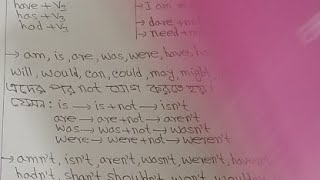 have + V₃
has + V₃
had + V₃
→ I am
→ dare + no
→ need + n
→ am, is, are, was, were, have, ha
will, would, can, could, may, might,
এদের পর not যোগ করতে হয়।
যেমন: is → is + not → isn't
are → are + not → aren't
was → was + not → wasn't
were → were + not → weren't
→ amn't, isn't, aren't, wasn't, weren't, haven
hadn't, shan't, shouldn't, won't, wouldn